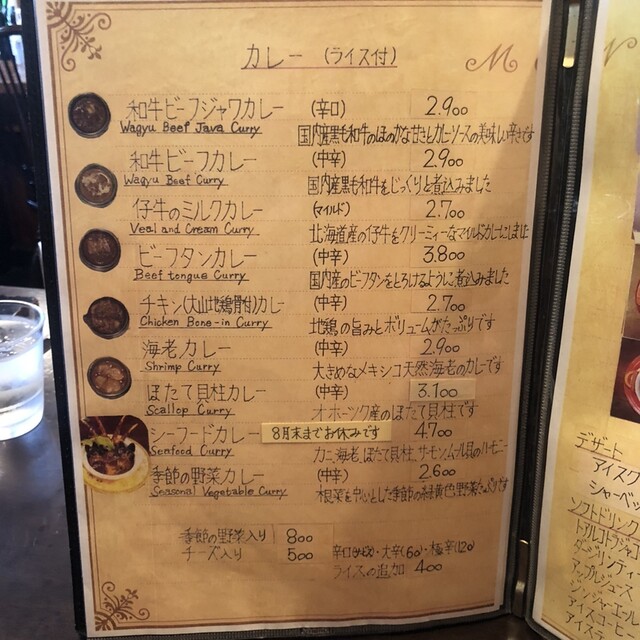 カレー (ライス付)
和牛ビーフジャワカレー (辛口) 2.900
Wagyu Beef Java Curry 国内産黒毛和牛のほのかな甘さとカレーソースの美味しい辛さです
和牛ビーフカレー (中辛) 2.900
Wagyu Beef Curry 国内産黒毛和牛をじっくりと煮込みました
仔牛のミルクカレー (マイルド) 2.700
Veal and Cream Curry 北海道産の仔牛をクリーミィーなマイルドカレーにしました
ビーフタンカレー (中辛) 3.800
Beef tongue Curry 国内産のビーフタンをとろけるように煮込みました
チキン(大山地鶏骨付)カレー (中辛) 2.700
Chicken Bone-in Curry 地鶏の旨みとボリュームがたっぷりです
海老カレー (中辛) 2.900
Shrimp Curry 大きめなメキシコ天然海老のカレーです
ほたて貝柱カレー (中辛) 3.100
Scallop Curry オホーツク産のほたて貝柱です
シーフードカレー 8月末までお休みです 4.700
Seafood Curry カニ、海老、ほたて貝柱、サーモン、ムール貝のハーモニー
季節の野菜カレー (中辛) 2.600
Seasonal Vegetable Curry 根菜を中心とした季節の緑黄色野菜たっぷりです
季節の野菜入り 800
チーズ入り 500 大辛(60)・極辛(120)
ライスの追加 400
デザート
アイスク
シャーベッ
ソフトドリン
アップルジュース
ジンジャーエール
アイスコー
アイス